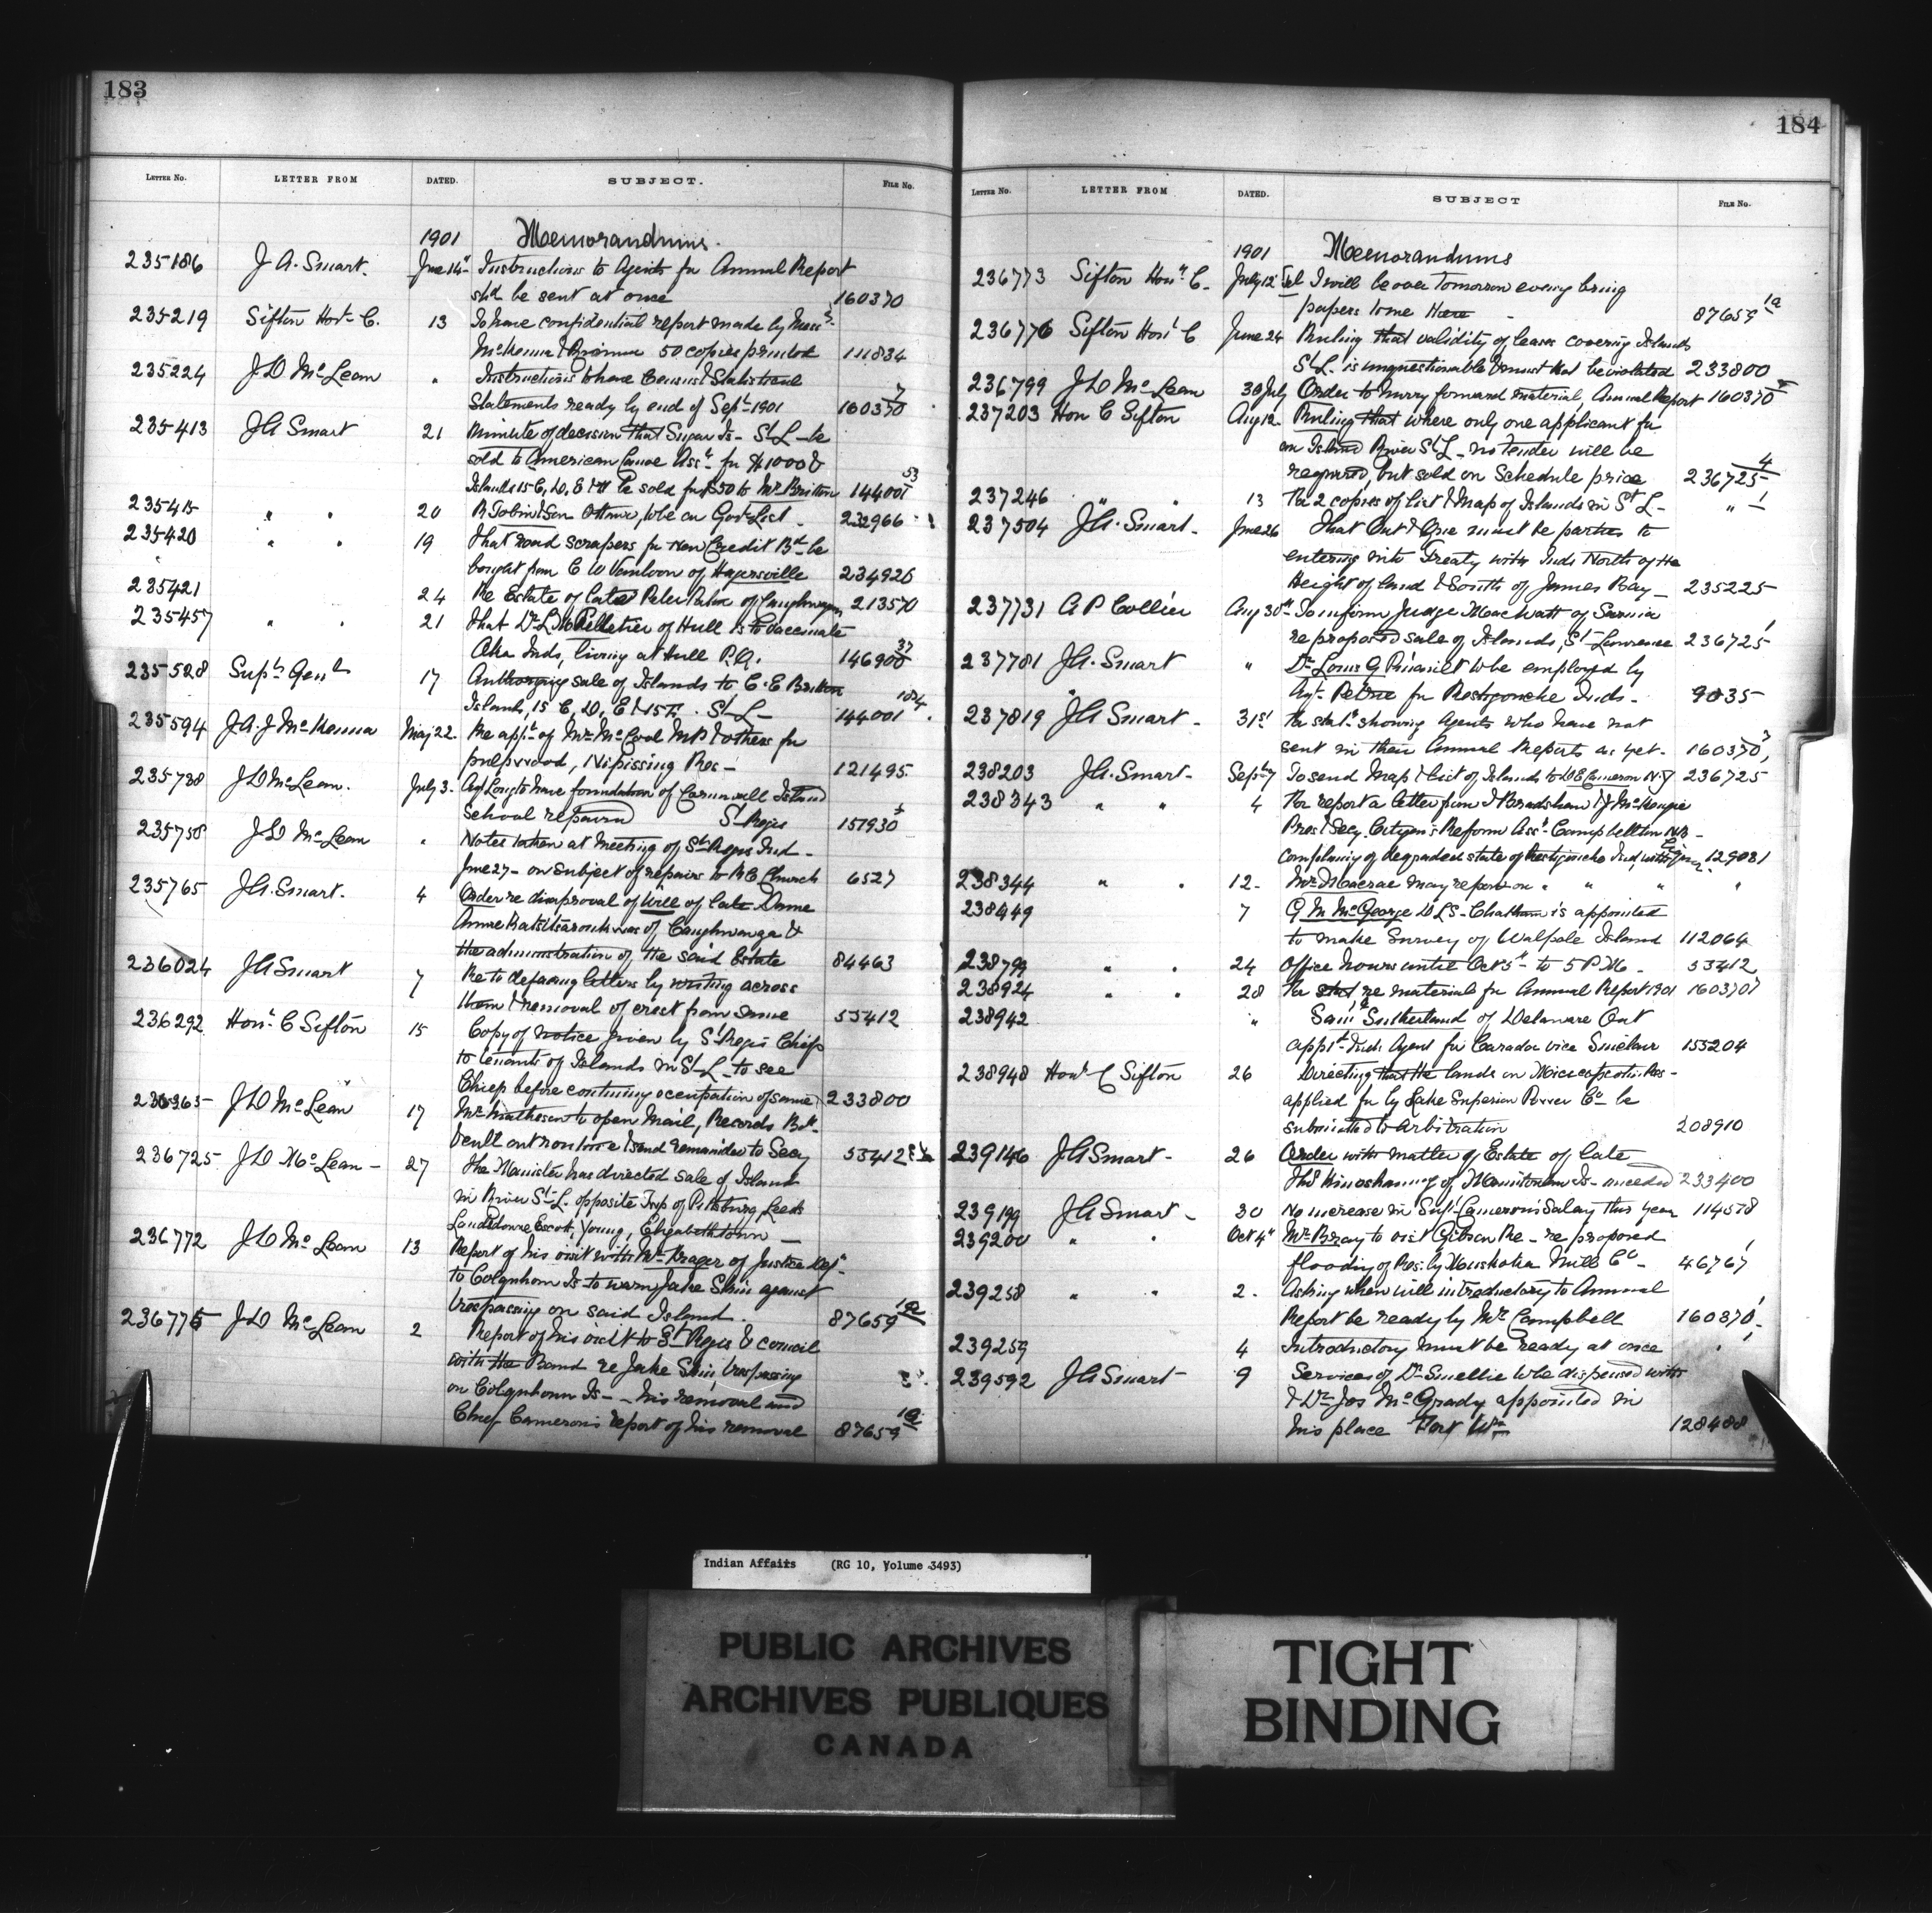 183
LETTER No. LETTER FROM DATED. SUBJECT. FILE No.
1901 Memorandums.
235186 J A. Smart. June 14th Instructions to Agents for Annual Report
shd be sent at once 160370
235219 Sifton Hon. C. 13 To have confidential report made by Messrs
McKenna & 50 copies printed 111834
235224 J D McLean " Instructions to have Census & Statistical
Statements ready by end of Sept 1901 160370 7
235413 JA Smart 21 Minute of decision that Sugar Is- St L- be
sold to American Canoe Assn for $1000 &
Islands 15 C, D, E & be sold for $50 to Mr Britton 144001 53
235415 " " 20 R Tobin & Son Ottawa, to be on Govt List - 232966
235420 " " 19 That road scrapers for New Credit Bd be
bought from C W Vanloon of Hagersville 234926
235421 24 Re Estate of late Peter of Caughnawaga 213570
235457 " " 21 That Dr L Pelletier of Hull is to vaccinate
Oka Inds, living at Hull P.Q. 146900 37
235528 Supt Genl 17 Authorizing sale of Islands to C. E Britton
Islands, 15 C, D, E & 15 F. St L- 144001 104
235594 J.A.J McKenna May 22. Re appt of Mr McCool M.P & others for
pulpwood, Nipissing Res- 121495
235738 J D McLean. July 3. Agt Long to have foundation of Cornwall Island
School repaired St Regis 151930
235758 J D McLean " Notes taken at meeting of St Regis Ind-
June 27- on subject of repairs to R C Church 6527
235765 JA. Smart. 4 Order re disapproval of Will of late Dame
Anne of Caughnawaga &
the administration of the said Estate 84463
236024 JA Smart 7 Re to defacing letters by writing across
them & removal of crest from same 53412
236292 Hon. C Sifton 15 Copy of notice given by St Regis Chiefs
to tenants of Islands in St L- to see
Chiefs before continuing occupation of same 233800
236365 J D McLean 17 Mr Matheson to open Mail, Records Bth
& send remainder to Secy 53412
236725 J D McLean - 27 The Minister has directed sale of Islands
in River St L. opposite Twp of Pittsburg, Leeds
Landsdowne Escott, Young, Elizabethtown -
236772 J D McLean 13 Report of his visit with Mr of Justice Dept
to Colquhoun Is to warn Jake Skin against
trespassing on said Island. 87659 1a
236775 J D McLean 2 Report of his visit to St Regis & council
with the Band re Jake Skin trespassing
on Colquhoun Is- - his removal and
Chief Cameron's report of his removal 87659 1a
184
LETTER No. LETTER FROM DATED. SUBJECT FILE No.
1901 Memorandums
236773 Sifton Hon. C. July 12 Tel I will be over Tomorrow evening bring
papers to me Here - 87659 1a
236776 Sifton Hon C June 24 Ruling that validity of leases covering Islands
St L. is unquestionable & must not be violated 233800
236799 J D McLean 30 July Order to hurry forward material, Annual Report 160370
237203 Hon C Sifton Aug 12- Ruling that where only one applicant for
an Island River St L- no Tender will be
required, but sold on Schedule price 236725 4
237246 " " 13 For 2 copies of list & Map of Islands in St L- " 1
237504 JA. Smart- June 26 That Ont & Que must be parties to
entering into Treaty with Inds North of the
Height of land & South of James Bay- 235225
237731 A P Collier Aug 30th To inform Judge MacWatt of Sarnia
re proposed sale of Islands, St Lawrence 236725 1
237781 JA. Smart " Dr Louis G Pinault to be employed by
Agt. Petrie for Restigouche Inds- 9035
237819 JA. Smart- 31st For statt showing Agents who have not
sent in their Annual Reports as yet. 160370
238203 JA. Smart- Sept 7 To send Map & list of Islands to D E Cameron N.Y 236725
238343 " " 4 For report a letter from & Bradshaw & J McKenzie
Pres & Secy. Citizen's Reform Assn- Campbellton N.B-
complaining of degraded state of Restigouche Ind, 129081
238344 " " 12- Mr Macrae may report on " " " "
238449 7 G M McGeorge D L S- Chatham is appointed
to make Survey of Walpole Island 112064
238799 " " 24 Office hours until Oct 5th to 5 P.M- 53412
238924 " " 28 For re material for Annual Report 1901 160370
238942 " Saml Sutherland of Delaware Ont
appt Inds Agent for Caradoc vice Sinclair 155204
238948 Hon C Sifton 26 Directing that the lands on Michipicoten Res-
applied for by Lake Superior Power Co be
submitted to Arbitration 208910
239146 JA Smart- 26 Order with matter of Estate of late
of Manitowan Is- 233400
239199 JA Smart- 30 No increase in Supt Cameron's Salary this year 114578
239200 " " Oct 4th Mr Bray to visit Gibson Re- re proposed
flooding of Res. by Muskoka Mill Co- 46767 1
239258 " " 2. Asking when will introductory to Annual
Report be ready by Mr Campbell 160370
239259 4 Introductory must be ready at once "
239592 JA Smart- 9 Services of Dr Smellie to be dispensed with
& Dr Jos McGrady appointed in
his place Fort Wm 128488
Indian Affairs (RG 10, Volume 3493)
PUBLIC ARCHIVES
ARCHIVES PUBLIQUES
CANADA
TIGHT
BINDING